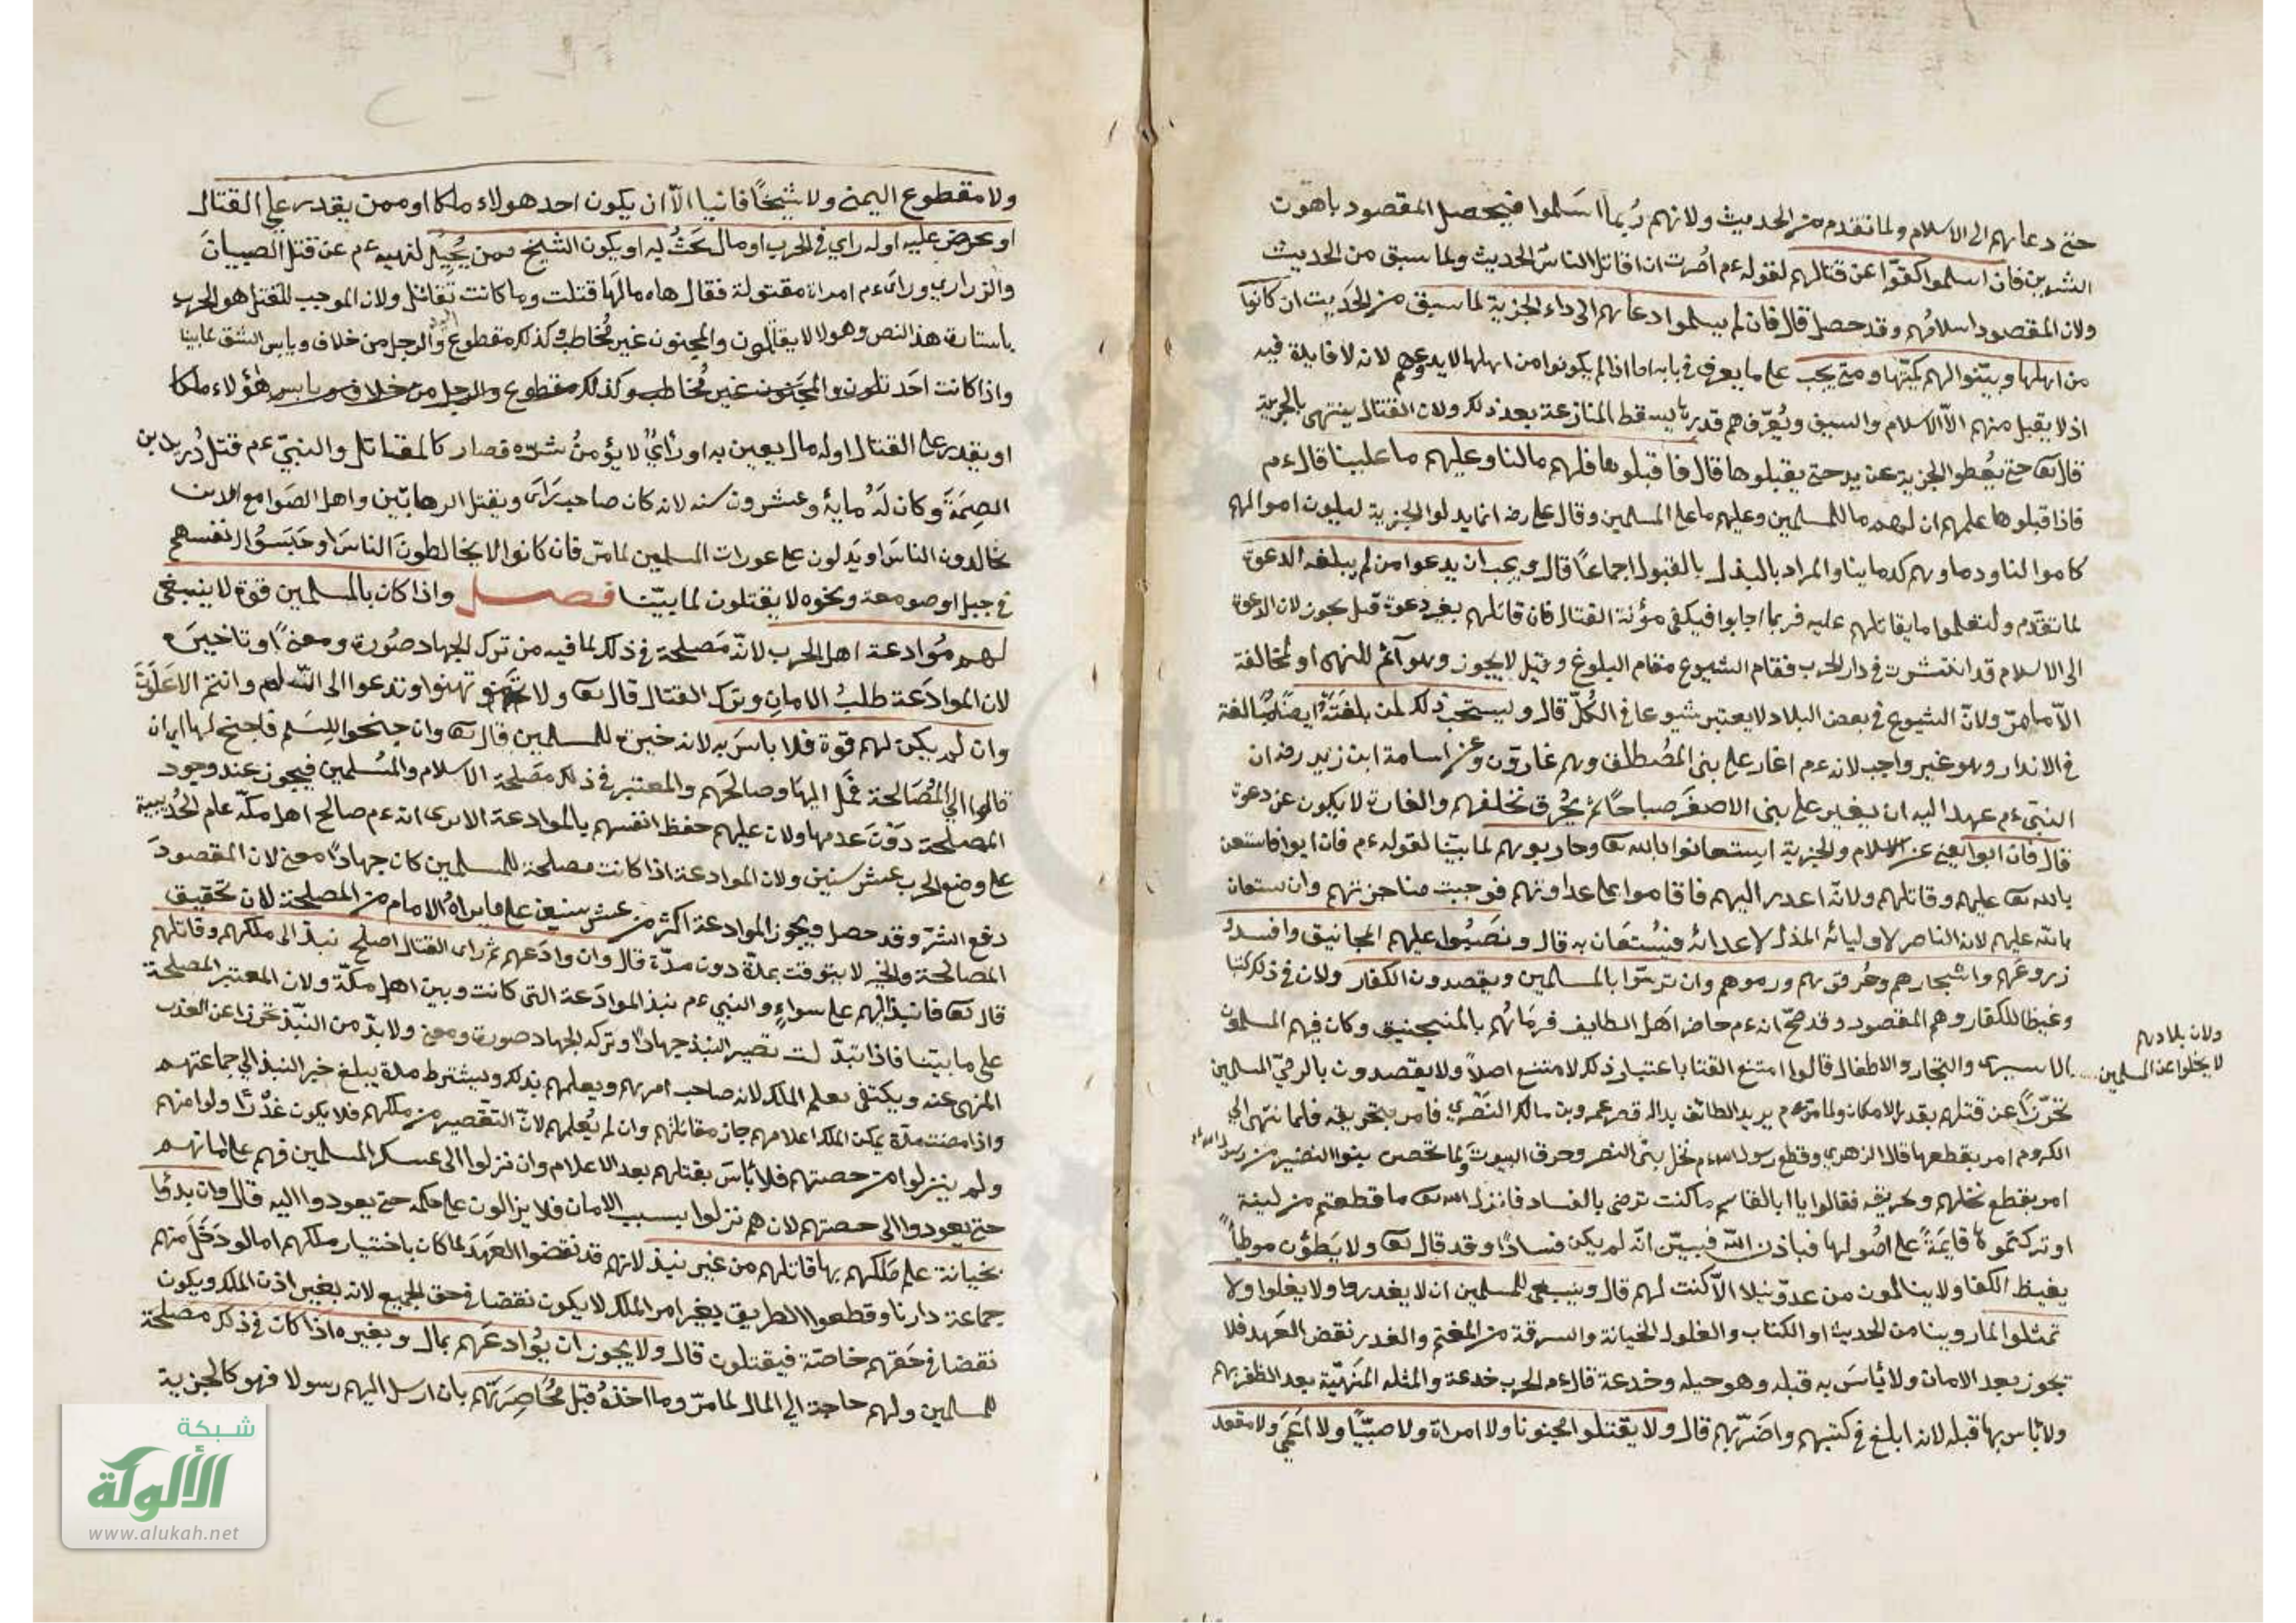 حتى دعاهم الى الاسلام ولما تقدم من الحديث ولانهم ربما اسلموا فيحصل المقصود باهون
الشرين فان اسلموا اكفوا عن قتالهم لقوله ءم امرت ان اقاتل الناس الحديث ولما سبق من الحديث
ولان المقصود اسلامهم وقد حصل قال فان لم يسلموا دعاهم الى داء الجزية لما سبق من الحديث ان كانوا
من اهلها وبينوا لهم كميتها ومتى يجب على ما يعرف في بابه اما اذا لم يكونوا من اهلها لا يدعوهم لانه لا فايدة فيه
اذ لا يقبل منهم الا الاسلام والسيف ويعرفهم قدر ما يسقط المنازعة بعد ذلك ولان القتال ينتهى بالجزية
قال تعا حتى يعطوا الجزية عن يد حتى يقبلوها قال فاقبلوها فلهم ما لنا وعليهم ما علينا قال ءم
فاذا قبلوها علمهم ان لهم ما للمسلمين وعليهم ما على المسلمين وقال على رضه انما بدلوا الجزية ليكون اموالهم
كاموالنا ودماوهم كدماينا والمراد بالبذل بالقبول اجماعا قال ويجب ان يدعوا من لم يبلغه الدعوة
لما تقدم وليعلموا ما يقاتلهم عليه فربما اجابوا فيكفى مؤنة القتال فان قاتلهم بغير دعوة قبل يجوز لان الدعوة
الى الاسلام قد انتشرت في دار الحرب فقام الشيوع مقام البلوغ وقيل لا يجوز وهو آثم للنهى او لمخالفة
الامر ولان الشيوع في بعض البلاد لا يعتبر شيوعا في الكل قال ويستحب ذلك لمن بلغته ايضا مبالغة
في الانذار وهو غير واجب لانه ءم اغار على بنى المصطلق وهم غارون وعن اسامة ابن زيد رضه ان
النبى ءم عهد اليه ان يغير على بنى الاصفر صباحا ثم يحرق نخلهم والغارة لا يكون عن دعوة
قال فان ابوا يعنى عن الاسلام والجزية استعانوا بالله تعا وحاربوهم لما بينا لقوله ءم فان ابوا فاستعن
بالله تعا عليهم وقاتلهم ولانه اعدر اليهم فاقاموا على عداوتهم فوجبت مناجزتهم وان ستعان
بالله عليهم لانه الناصر لاوليائه المذل لاعدائه فيستعان به قال ونصبوا عليهم المجانيق وافسدوا
زروعهم واشجارهم وحرقوهم ورموهم وان ترسوا بالمسلمين ويقصدون الكفار ولان في ذلك كبتا
وغيظا للكفار وهم المقصود وقد صح انه ءم حاصر اهل الطايف فرماهم بالمنجنيق وكان فيهم المسلمون
ولان بلادهم
لا يخلوا عن المسلمين
الاسيرى والتجار والاطفال قالوا امتنع القتا باعتبار ذلك لامتنع اصلا ولا يقصدون بالرمى المسلمين
تحرزا عن قتلهم بقدر الامكان ولما مر ءم يريد الطائف بداله قصر عمرو بن مالك النضري فامر بتحريقه فلما انتهى الى
الكروم امر بقطعها قال الزهري وقطع رسول الله ءم نخل بنى النضر وحرق البيوت ولما تحصن بنوا النضير من رسول الله ءم
امر بقطع نخلهم وتحريقه فقالوا يا ابا القاسم ما كنت ترضى بالفساد فانزل الله تعا ما قطعتم من لينة
او تركتموها قايمة على اصولها فباذن الله فبين انه لم يكن فسادا وقد قال تعا ولا يطؤن موطأ
يغيظ الكفا ولا ينالون من عدو نيلا الا كتب لهم قال وينبغى للمسلمين ان لا يغدروا ولا يغلوا ولا
تمثلوا لما روينا من الحديث او الكتاب والغلول الخيانة والسرقة من المغنم والغدر نقض العهد فلا
يجوز بعد الامان ولا باس به قبله وهو حيله وخدعة قال ءم الحرب خدعة والمثله المنهية بعد الظفر بهم
ولا باس بها قبله لانه ابلغ في كبتهم واضر بهم قال ولا يقتلوا مجنونا ولا امراة ولا صبيا ولا اعمى ولا مقعد
ولا مقطوع اليمنى ولا شيخا فانيا الا ان يكون احد هولاء ملكا او ممن يقدر على القتال
او يحرض عليه او له راي في الحرب او مال يحث به او يكون الشيخ ممن يحيل لنهيه ءم عن قتل الصبيان
والزراري وراى ءم امراة مقتولة فقال هاه مالها قتلت وما كانت تقاتل ولان الموجب للقتل هو الحرب
باشارة هذا النص وهولا لا يقاتلون والمجنون غير مخاطب وكذلك مقطوع اليد والرجل من خلاف ويابس الشق لما بينا
واذا كانت احد تلون والمجنون غير مخاطب وكذلك مقطوع والرجل من خلاف ويابس هؤلاء ملكا
او يقدر على القتال او له مال يعين به او رأى لا يؤمن شره فصار كالمقاتل والنبى ءم قتل دريد بن
الصمة وكان له ماية وعشرون سنه لانه كان صاحب راى ويقتل الرهابين واهل الصوامع الذين
يخالدون الناس او يدلون على عورات المسلمين لما مر فان كانوا لا يخالطون الناس او حبسوا انفسهم
في جبل او صومعة ونحوه لا يقتلون لما بينا فصل واذا كان بالمسلمين قوة لا ينبغى
لهم موادعة اهل الحرب لانه مصلحة في ذلك لما فيه من ترك الجهاد صورة ومعنى او تاخيره
لان الموادعة طلب الامان وترك القتال قال تعا ولا تهنوا وتدعوا الى السلم وانتم الاعلون
وان لم يكن لهم قوة فلا باس به لانه خيرة للمسلمين قال تعا وان جنحوا للسلم فاجنح لها اي ان
مالوا الى المصالحة فمل اليها وصالحهم والمعتبر في ذلك مصلحة الاسلام والمسلمين فيجوز عند وجود
المصلحة دون عدمها ولان عليهم حفظ انفسهم بالموادعة الا يرى انه ءم صالح اهل مكة عام الحديبية
على وضع الحرب عشر سنين ولان الموادعة اذا كانت مصلحة للمسلمين كان جهادا معنى لان المقصود
دفع الشر وقد حصل ويجوز الموادعة اكثر من عشر سنين على ما يراه الامام من المصلحة لان تحقيق
المصالحة والخير لا يتوقت بمدة دون مدة قال وان وادعهم ثم راى القتال اصلح نبذ الى ملكهم وقاتلهم
قال تعا فانبذ اليهم على سواء والنبى ءم نبذ الموادعة التى كانت وبين اهل مكة ولان المعتبر المصلحة
على ما بينا فاذا تبدلت تصير النبذ جهادا وتركه الجهاد صورة ومعنى ولا بد من النبذ تحرزا عن الغدر
المنهى عنه ويكتفى بعلم الملك لانه صاحب امرهم ويعلمهم بذلك ويشترط مدة يبلغ خبر النبذ الى جماعتهم
واذا مضت مدة يمكن الملك اعلامهم جاز مقاتلتهم وان لم يعلمهم لان التقصير من ملكهم فلا يكون غدرا ولو امنهم
ولم ينزلوا من حصتهم فلا باس بقتلهم بعد الاعلام وان نزلوا الى عسكر المسلمين فهم على امانهم
حتى يعودوا الى حصتهم لان هم نزلوا بسبب الامان فلا يزالون على حكمه حتى يعودوا اليه قال وان بدؤا
بخيانة علم ملكهم بها قاتلهم من غير نبذ لانهم قد نقضوا العهد لما كان باختيار ملكهم اما لو دخل منهم
جماعة دارنا وقطعوا الطريق بغير امر الملك لا يكون نقضا في حق الجميع لانه بغير اذن الملك ويكون
نقضا في حقهم خاصة فيقتلون قال ولا يجوز ان يوادعهم بمال وبغيره اذا كان في ذلك مصلحة
للمسلمين ولهم حاجة الى المال لما مر وما اخذه قبل محاصرتهم بان ارسل اليهم رسولا فهو كالجزية
شبكة
الألوكة
www.alukah.net